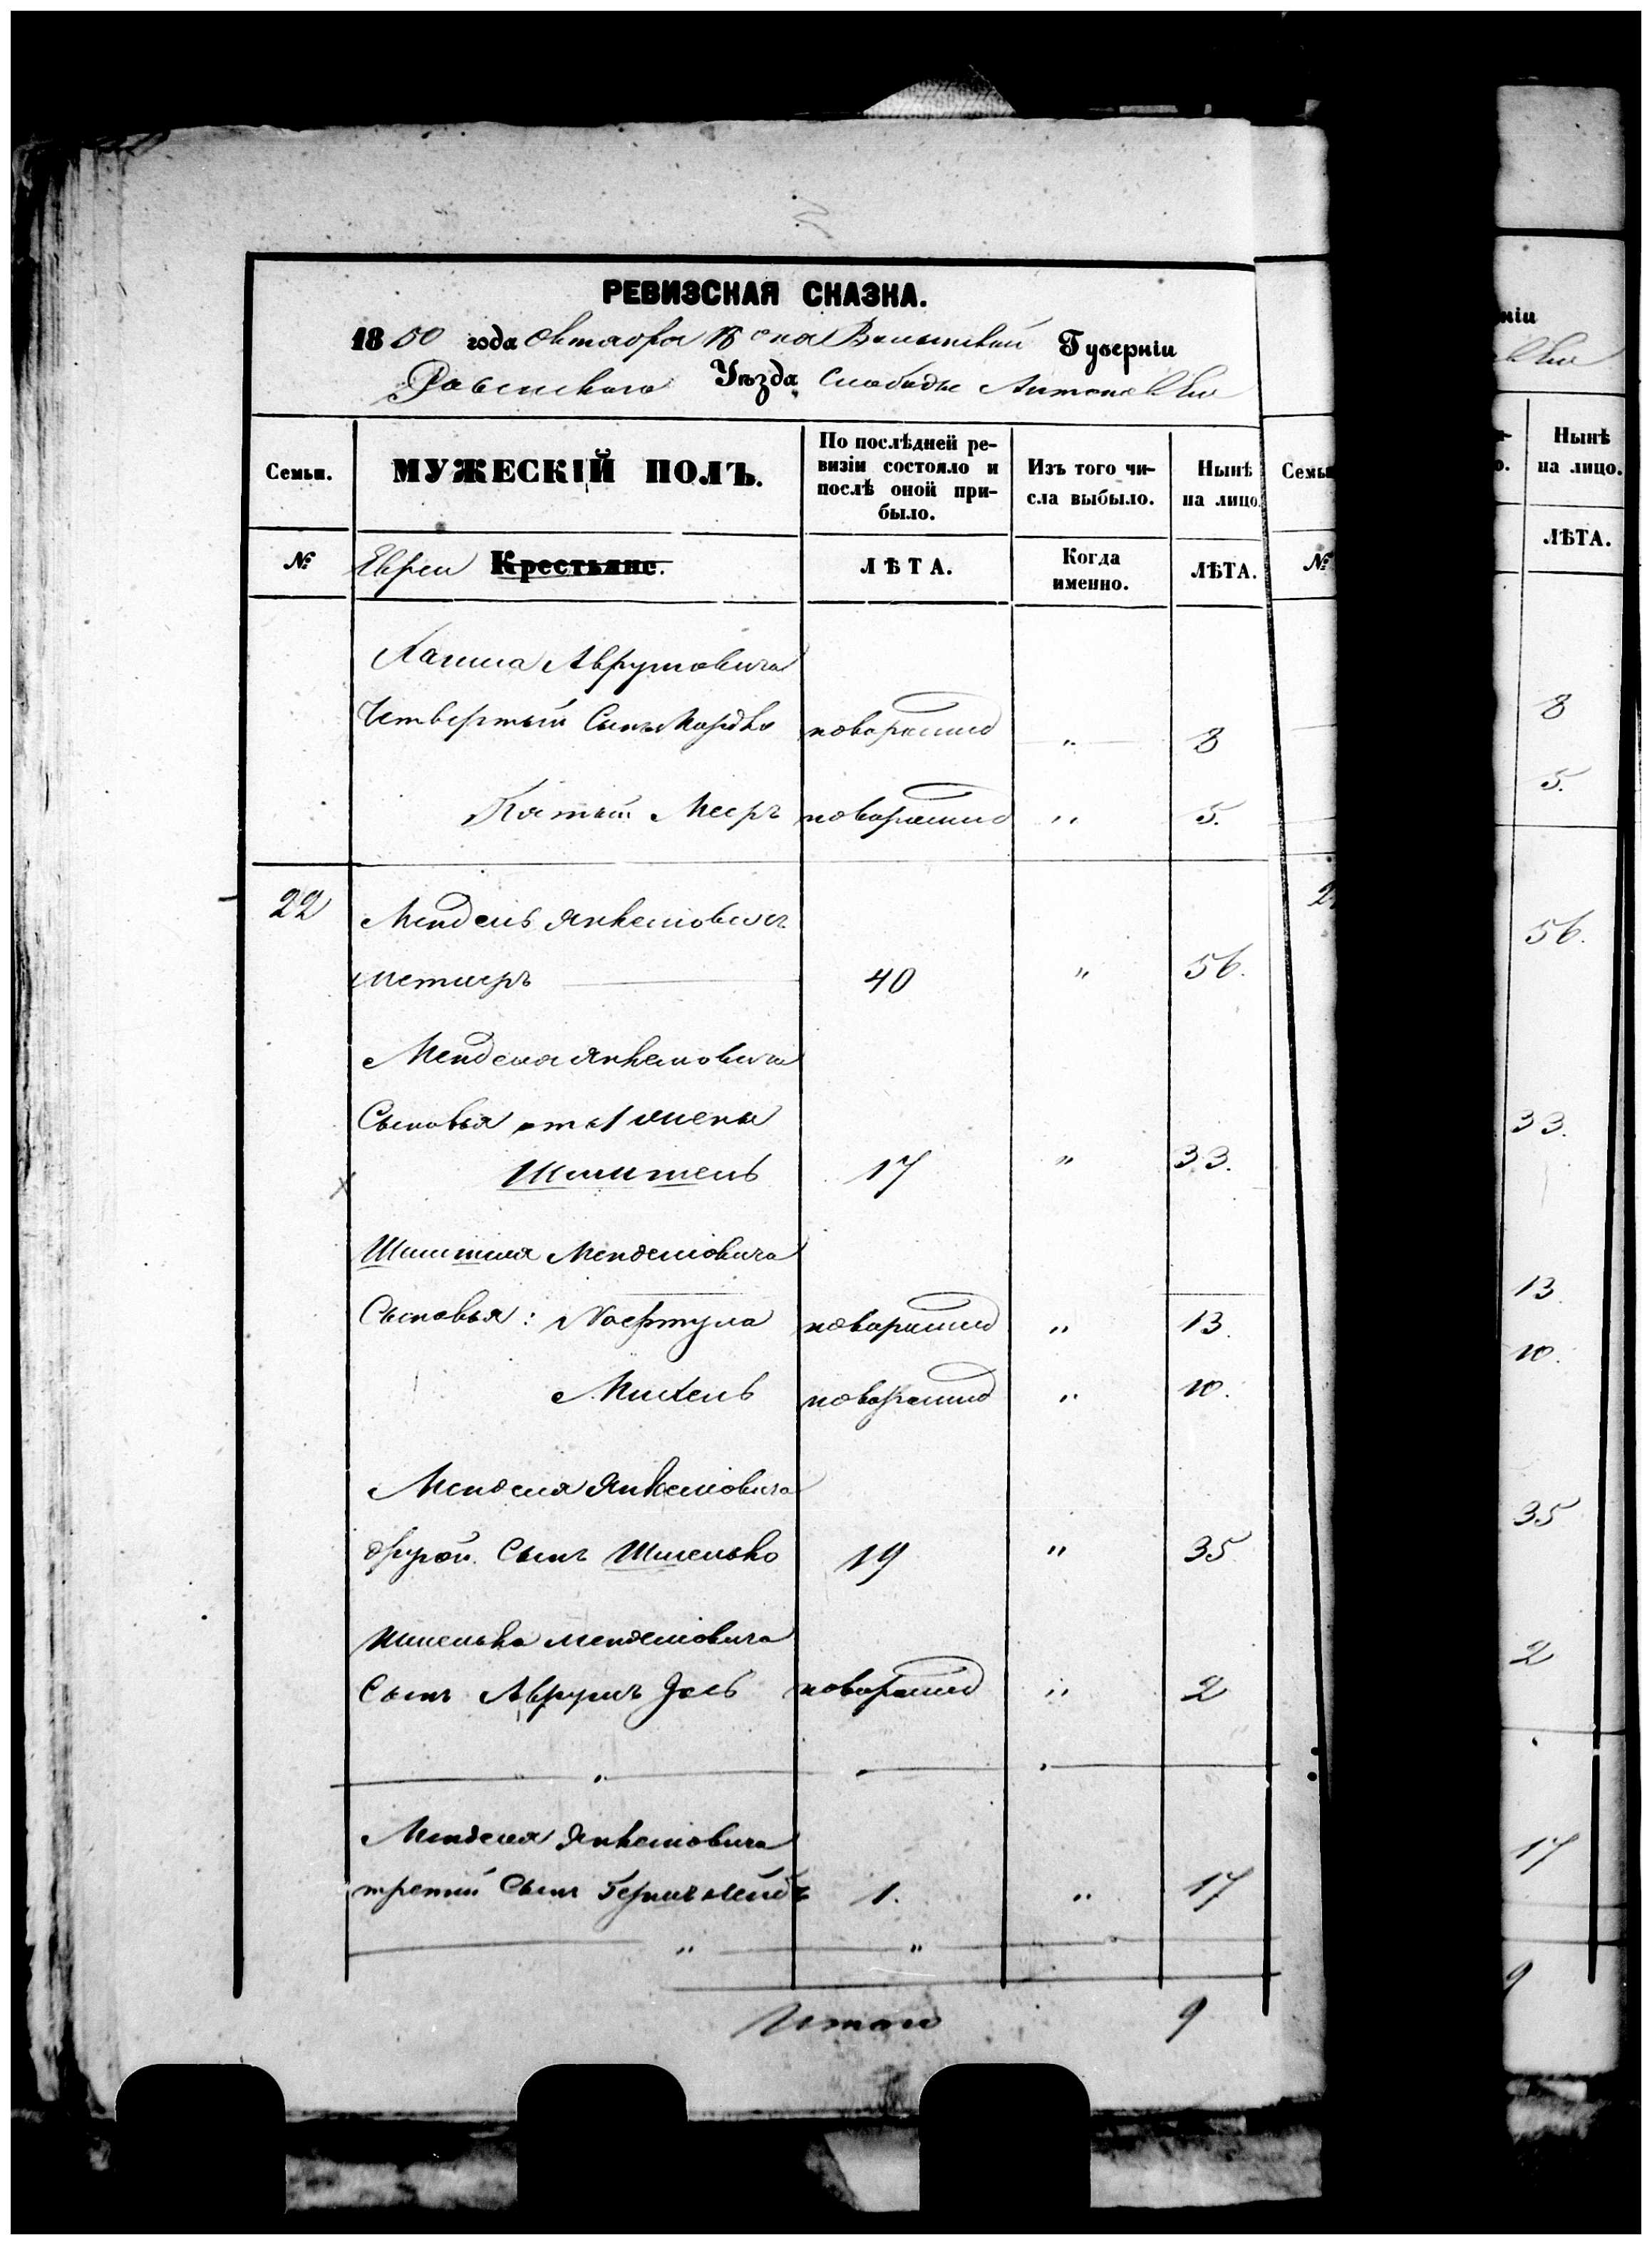 РЕВИЗСКАЯ СКАЗКА.
1850 года Октября 18 дня Волынской Губерніи
Ровенскаго Уѣзда Слободы Антоновки
Семьи. МУЖЕСКІЙ ПОЛЪ. По послѣдней ре-визіи состояло и послѣ оной при-было. Изъ того чи-сла выбыло. Нынѣ на лицо
№ Евреи Крестьяне. ЛѢТА. Когда именно. ЛѢТА.
Аврумовича
Четвертый Сынъ Мордко новорожд „ 8
Пятый Мееръ новорожд „ 5.
22 Мендель Янкелiовичъ
40 „ 56.
Менделя Янкелiовича
Сыновья от 1 жены
17 „ 33.
Менделiовича
Сыновья: новорожд „ 13.
Михель новорожд „ 10.
Менделя Янкелiовича
другой Сынъ Шмелько 19 „ 35
Шмелька Менделiовича
Сынъ Аврумъ новорожд „ 2
Менделя Янкелiовича
третий Сынъ 1. „ 17
Итого 9
Семьи
№
2
ніи
Нынѣ
на лицо.
ЛѢТА.
8
5.
56.
33.
13
10.
35
2
17
9